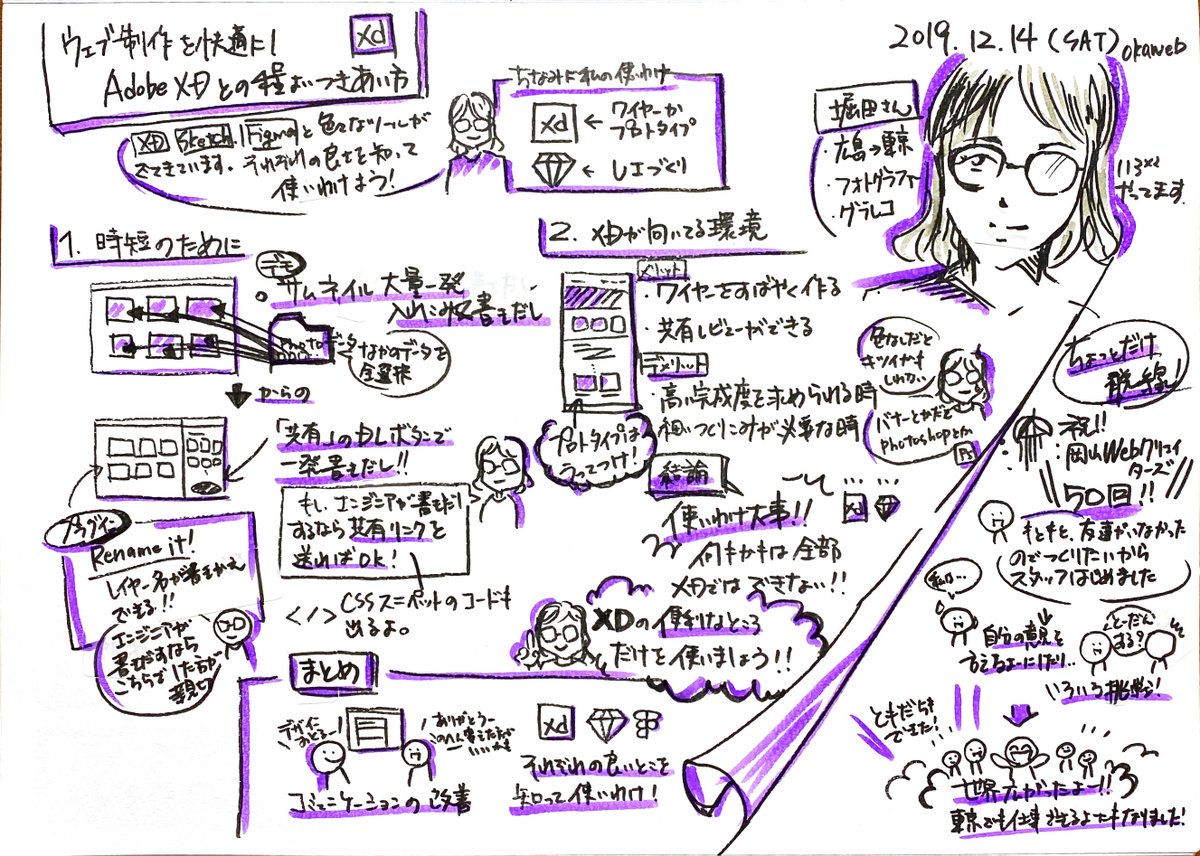 ウェブ制作を快適に!
Xd
Adobe XDとの程よいつきあい方
XD Sketch Figmaと色んなツールが
でてきています。それぞれの良さを知って
使いわけよう!
ちなみに私の使いわけ
Xd ← ワイヤーか
プロトタイプ
← UIづくり
2019.12.14 (SAT) okaweb
堀田さん
・広島→東京
・フォトグラファー
・グラレコ
やってます
1. 時短のために
デモ
サムネイル 大量一発
入れこみ&書きだし
Photo データ
なかのデータを
全選択
からの
「共有」の中しボタンで
一発書きだし!!
もし、エンジニアが書きだし
するなら共有リンクを
送ればOK!
</> CSSスニペットのコードも
出るよ。
プラグイン
Rename it!
レイヤー名が書きかえ
できる!!
エンジニアが
書きだすなら
こちらでした方が
親切
2. XDが向いてる環境
メリット
・ワイヤーをすばやく作る
・共有レビューができる
デメリット
・高い完成度を求められる時
・細いつくりこみが必要な時
プロトタイプは
うってつけ!
色なしだと
キツイかも
しれない
バナーとかだと
Photoshopとか
Ps
結論
使いわけ大事!!
Xd
何もかもは全部
XDではできない!!
XDの便利なところ
だけを使いましょう!!
まとめ
デザイン
ありがとうー
コミュニケーションの改善
Xd
それぞれの良いとこを
知って使いわけ!
ちょっとだけ
脱線!
祝!!
岡山Webクリエイ
ターズ
50回!!
もともと、友達がいなかった
のでつくりたいから
スタッフはじめました
私は…
自分の意見を
言えるよーにしたり…
どーだん
する?
いろいろ挑戦!
ともだちも
できた!
世界ひろがったよー!!
東京でも仕事できるよーにもなりました!